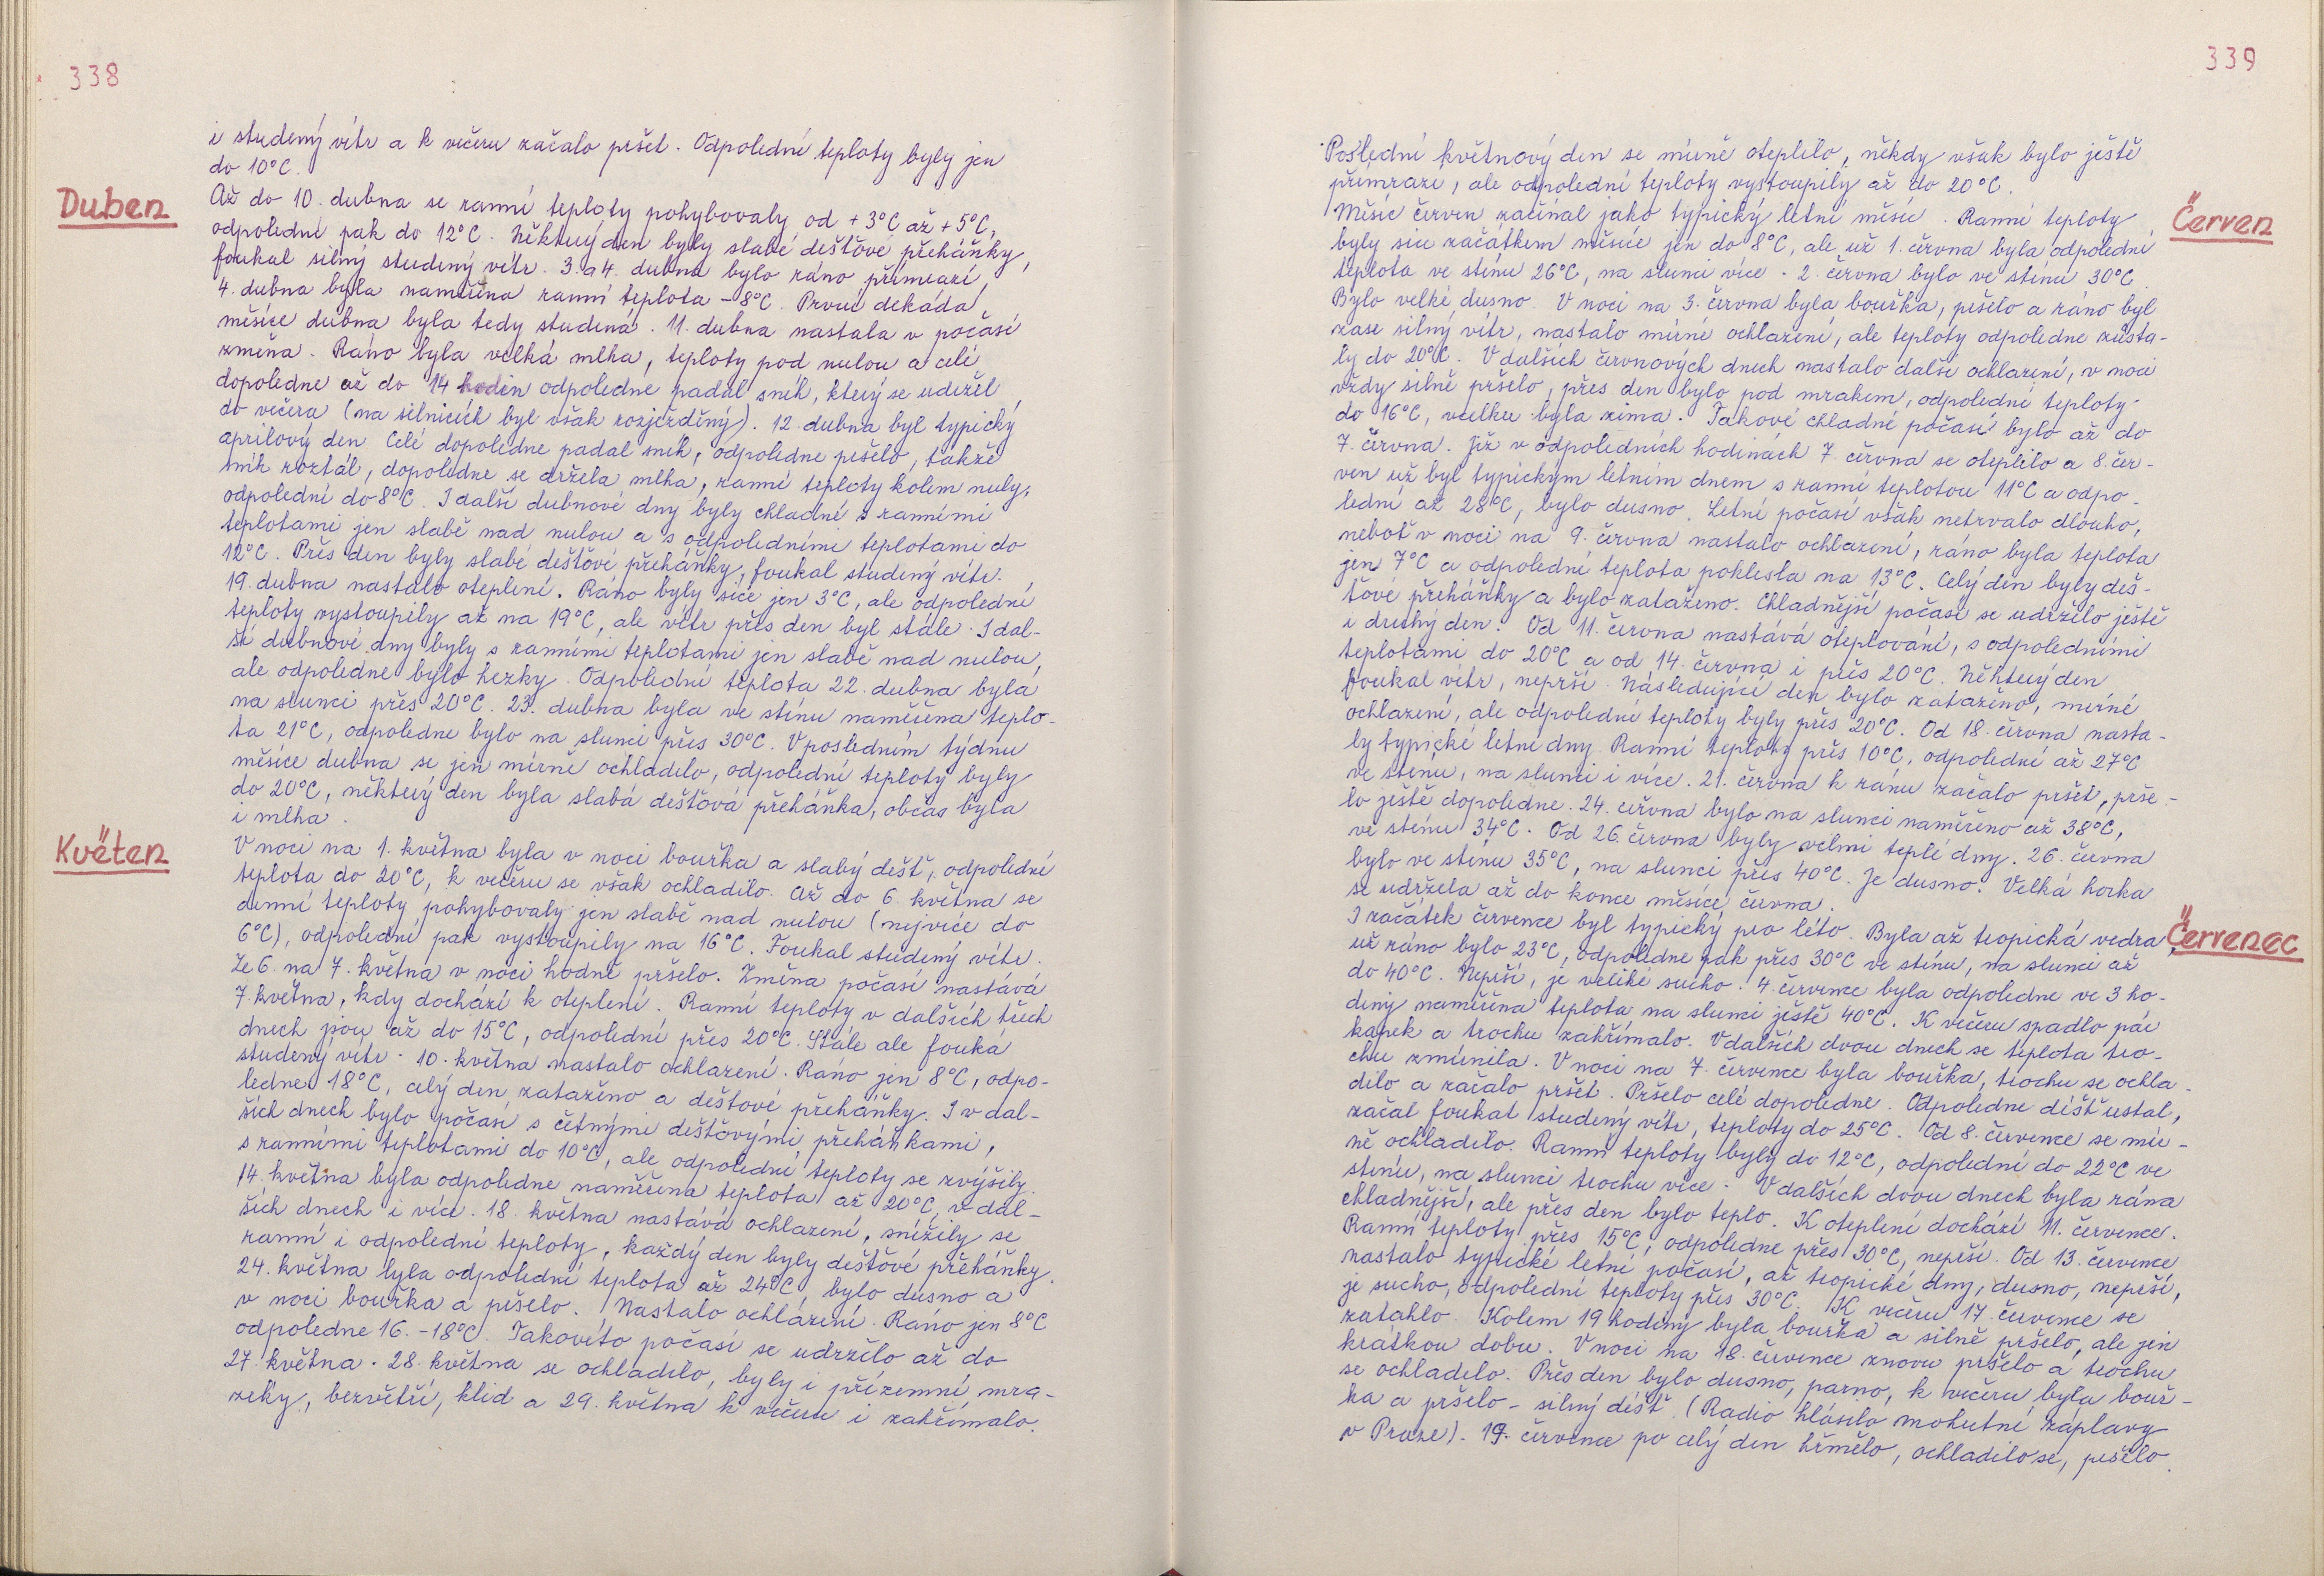 338
i studený vítr a k večeru začalo pršet. Odpolední teploty byly jen
do 10°C.
Duben
Až do 10. dubna se ranní teploty pohybovaly od +3°C až +5°C,
odpolední pak do 12°C. Některý den byly slabé dešťové přeháňky,
foukal silný studený vítr. 3. a 4. dubna bylo ráno přímrazí,
4. dubna byla naměřena ranní teplota -8°C. První dekáda
měsíce dubna byla tedy studená. 11. dubna nastala v počasí
změna. Ráno byla velká mlha, teploty pod nulou a celé
dopoledne až do 14 hodin odpoledne padal sníh, který se udržel
do večera (na silnicích byl však rozježděný). 12. dubna byl typický
aprilový den. Celé dopoledne padal sníh, odpoledne pršelo, takže
sníh roztál, dopoledne se držela mlha, ranní teploty kolem nuly,
odpolední do 8°C. I další dubnové dny byly chladné s ranními
teplotami jen slabě nad nulou a s odpoledními teplotami do
12°C. Přes den byly slabé dešťové přeháňky, foukal studený vítr.
19. dubna nastalo oteplení. Ráno byly sice jen 3°C, ale odpolední
teploty vystoupily až na 19°C, ale vítr přes den byl stále. I dal-
ší dubnové dny byly s ranními teplotami jen slabě nad nulou,
ale odpoledne bylo hezky. Odpolední teplota 22. dubna byla
na slunci přes 20°C. 23. dubna byla ve stínu naměřena teplo-
ta 21°C, odpoledne bylo na slunci přes 30°C. V posledním týdnu
měsíce dubna se jen mírně ochladilo, odpolední teploty byly
do 20°C, některý den byla slabá dešťová přeháňka, občas byla
i mlha.
Květen
V noci na 1. května byla v noci bouřka a slabý déšť, odpolední
teplota do 20°C, k večeru se však ochladilo. Až do 6. května se
denní teploty pohybovaly jen slabě nad nulou (nejvíce do
6°C), odpolední pak vystoupily na 16°C. Foukal studený vítr.
Ze 6. na 7. května v noci hodně pršelo. Změna počasí nastává
7. května, kdy dochází k oteplení. Ranní teploty v dalších třech
dnech jsou až do 15°C, odpolední přes 20°C. Stále ale fouká
studený vítr. 10. května nastalo ochlazení. Ráno jen 8°C, odpo-
ledne 18°C, celý den zataženo a dešťové přeháňky. I v dal-
ších dnech bylo počasí s četnými dešťovými přeháňkami,
s ranními teplotami do 10°C, ale odpolední teploty se zvýšily.
14. května byla odpoledne naměřena teplota až 20°C, v dal-
ších dnech i více. 18. května nastává ochlazení, snížily se
ranní i odpolední teploty, každý den byly dešťové přeháňky.
24. května byla odpolední teplota až 24°C, bylo dusno a
v noci bouřka a pršelo. Nastalo ochlazení. Ráno jen 8°C
odpoledne 16.-18°C. Takovéto počasí se udrželo až do
27. května. 28. května se ochladilo, byly i přízemní mra-
zíky, bezvětří, klid a 29. května k večeru i zahřímalo.
339
Poslední květnový den se mírně oteplilo, někdy však bylo ještě
přímrazí, ale odpolední teploty vystoupily až do 20°C.
Červen
Měsíc červen začínal jako typický letní měsíc. Ranní teploty
byly sice začátkem měsíce jen do 8°C, ale už 1. června byla odpolední
teplota ve stínu 26°C, na slunci více. 2. června bylo ve stínu 30°C.
Bylo velké dusno. V noci na 3. června byla bouřka, pršelo a ráno byl
zase silný vítr, nastalo mírné ochlazení, ale teploty odpoledne zůsta-
ly do 20°C. V dalších červnových dnech nastalo další ochlazení, v noci
vždy silně pršelo, přes den bylo pod mrakem, odpolední teploty
do 16°C, vcelku byla zima. Takové chladné počasí bylo až do
7. června. Již v odpoledních hodinách 7. června se oteplilo a 8. čer-
ven už byl typickým letním dnem s ranní teplotou 11°C a odpo-
lední až 28°C, bylo dusno. Letní počasí však netrvalo dlouho,
neboť v noci na 9. června nastalo ochlazení, ráno byla teplota
jen 7°C a odpolední teplota poklesla na 13°C. Celý den byly deš-
ťové přeháňky a bylo zataženo. Chladnější počasí se udrželo ještě
i druhý den. Od 11. června nastává oteplování, s odpoledními
teplotami do 20°C a od 14. června i přes 20°C. Některý den
foukal vítr, neprší. Následující den bylo zataženo, mírné
ochlazení, ale odpolední teploty byly přes 20°C. Od 18. června nasta-
ly typické letní dny. Ranní teploty přes 10°C, odpolední až 27°C
ve stínu, na slunci i více. 21. června k ránu začalo pršet, prše-
lo ještě dopoledne. 24. června bylo na slunci naměřeno až 38°C,
ve stínu 34°C. Od 26. června byly velmi teplé dny. 26. června
bylo ve stínu 35°C, na slunci přes 40°C. Je dusno. Velká horka
se udržela až do konce měsíce června.
Červenec
I začátek července byl typický pro léto. Byla až tropická vedra,
už ráno bylo 23°C, odpoledne pak přes 30°C ve stínu, na slunci až
do 40°C. Neprší, je veliké sucho. 4. července byla odpoledne ve 3 ho-
diny naměřena teplota na slunci ještě 40°C. K večeru spadlo pár
kapek a trochu zahřímalo. V dalších dvou dnech se teplota tro-
chu zmírnila. V noci na 7. července byla bouřka, trochu se ochla-
dilo a začalo pršet. Pršelo celé dopoledne. Odpoledne déšť ustal,
začal foukat studený vítr, teploty do 25°C. Od 8. července se mír-
ně ochladilo. Ranní teploty byly do 12°C, odpolední do 22°C ve
stínu, na slunci trochu více. V dalších dvou dnech byla rána
chladnější, ale přes den bylo teplo. K oteplení dochází 11. července.
Ranní teploty přes 15°C, odpoledne přes 30°C, neprší. Od 13. července
nastalo typické letní počasí, až tropické dny, dusno, neprší,
je sucho, odpolední teploty přes 30°C. K večeru 17. července se
zatáhlo. Kolem 19 hodiny byla bouřka a silně pršelo, ale jen
krátkou dobu. V noci na 18. července znovu pršelo a trochu
se ochladilo. Přes den bylo dusno, parno, k večeru byla bouř-
ka a pršelo - silný déšť. (Radio hlásilo mohutné záplavy
v Praze). 19. července po celý den hřmělo, ochladilo se, pršelo.